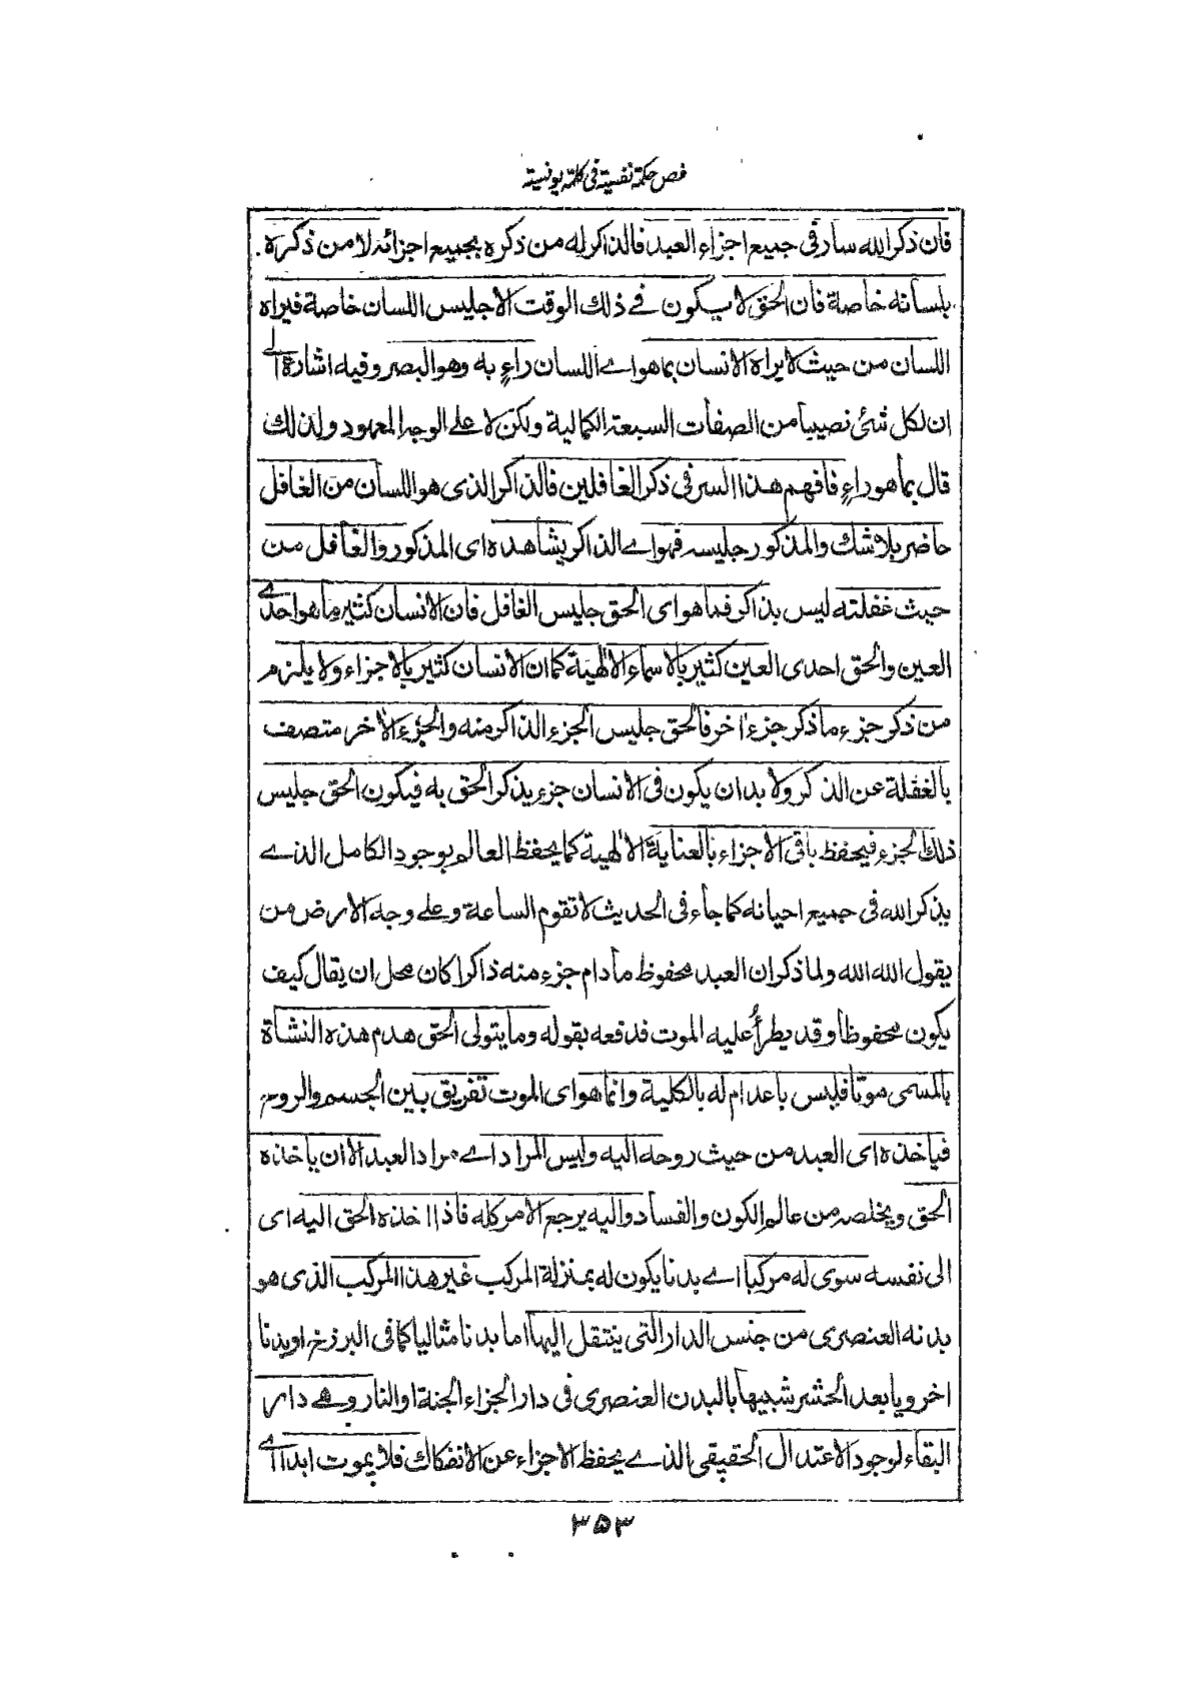 فص حكمة نفسية فى كلمة يونسية
فان ذكر الله سار فى جميع اجزاء العبد فالذاكر له من ذكره بجميع اجزائه لا من ذكره
بلسانه خاصة فان الحق لا يكون فے ذلك الوقت الا جليس اللسان خاصة فيراه
اللسان من حيث لا يراه الانسان بما هو اے اللسان راءٍ به وهو البصر وفيه اشارة الے
ان لكل شئ نصيبا من الصفات السبعة الكمالية ولكن لا علے الوجه المعهود ولذلك
قال بما هو راءٍ فافهم هذا السر فى ذكر الغافلين فالذاكر الذى هو اللسان من الغافل
حاضر بلا شك والمذكور جليسه فهو اے الذاكر يشاهده اى المذكور والغافل من
حيث غفلته ليس بذاكر فما هو اى الحق جليس الغافل فان الانسان كثير ما هو احدے
العين والحق احدى العين كثير بالاسماء الالهية كما ان الانسان كثير بالاجزاء ولا يلزم
من ذكر جزء ما ذكر جزء اخر فالحق جليس الجزء الذاكر منه والجزء الاخر متصف
بالغفلة عن الذكر ولا بد ان يكون فى الانسان جزء يذكر الحق به فيكون الحق جليس
ذلك الجزء فيحفظ باقى الاجزاء بالعناية الالهية كما يحفظ العالم بوجود الكامل الذے
يذكر الله فى جميع احيانه كما جاء فى الحديث لا تقوم الساعة وعلے وجه الارض من
يقول الله الله ولما ذكر ان العبد محفوظ ما دام جزء منه ذاكرا كان محل ان يقال كيف
يكون محفوظا وقد يطرأُ عليه الموت فدفعه بقوله وما يتولى الحق هدم هذه النشاة
بالمسمى موتا فليس باعدام له بالكلية وانما هو اى الموت تفريق بين الجسم والروح
فياخذه اى العبد من حيث روحه اليه وليس المراد اے مراد العبد الا ان ياخذه
الحق ويخلصه من عالم الكون والفساد واليه يرجع الامر كله فاذا اخذه الحق اليه اى
الى نفسه سوى له مركبا اے بدنا يكون له بمنزلة المركب غير هذا المركب الذى هو
بدنه العنصرى من جنس الدار التى ينتقل اليها اما بدنا مثاليا كما فى البرزخ او بدنا
اخرويا بعد الحشر شبيها بالبدن العنصرى فى دار الجزاء الجنة او النار وهے دار
البقاء لوجود الاعتدال الحقيقى الذے يحفظ الاجزاء عن الانفكاك فلا يموت ابدا اے
٣٥٣